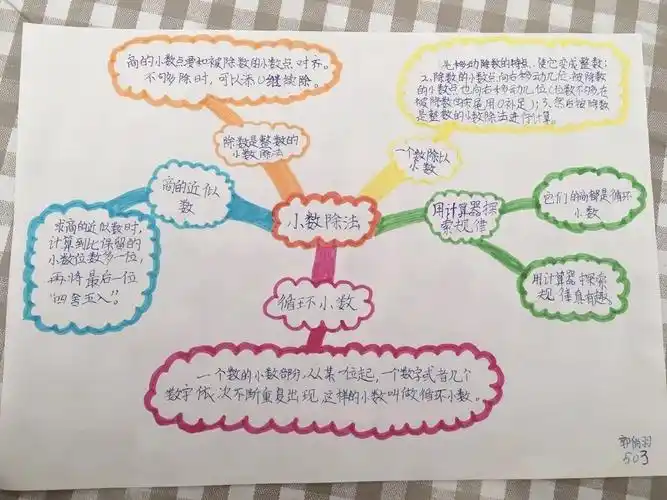 商的小数点要和被除数的小数点对齐。
不够除时，可以添0继续除。
除数是整数的
小数除法
1、移动除数的小数点，使它变成整数；
2、除数的小数点向右移动几位，被除数
的小数点也向右移动几位（位数不够在
被除数的末尾用0补足）；3、然后按除数
是整数的小数除法进行计算。
一个数除以
小数
商的近似
数
求商的近似数时，
计算到比保留的
小数位数多一位，
再将最后一位
“四舍五入”。
小数除法
用计算器探
索规律
它们的商都是循环
小数
用计算器探索
规律真有趣。
循环小数
一个数的小数部分，从某一位起，一个数字或者几个
数字依次不断重复出现，这样的小数叫做循环小数。
503